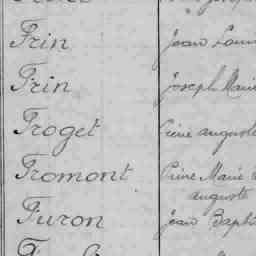 Frin Jean Loui
Frin Joseph Marie
Froget Pierre auguste
Fromont Pierre Marie
auguste
Furon Jean Bapt